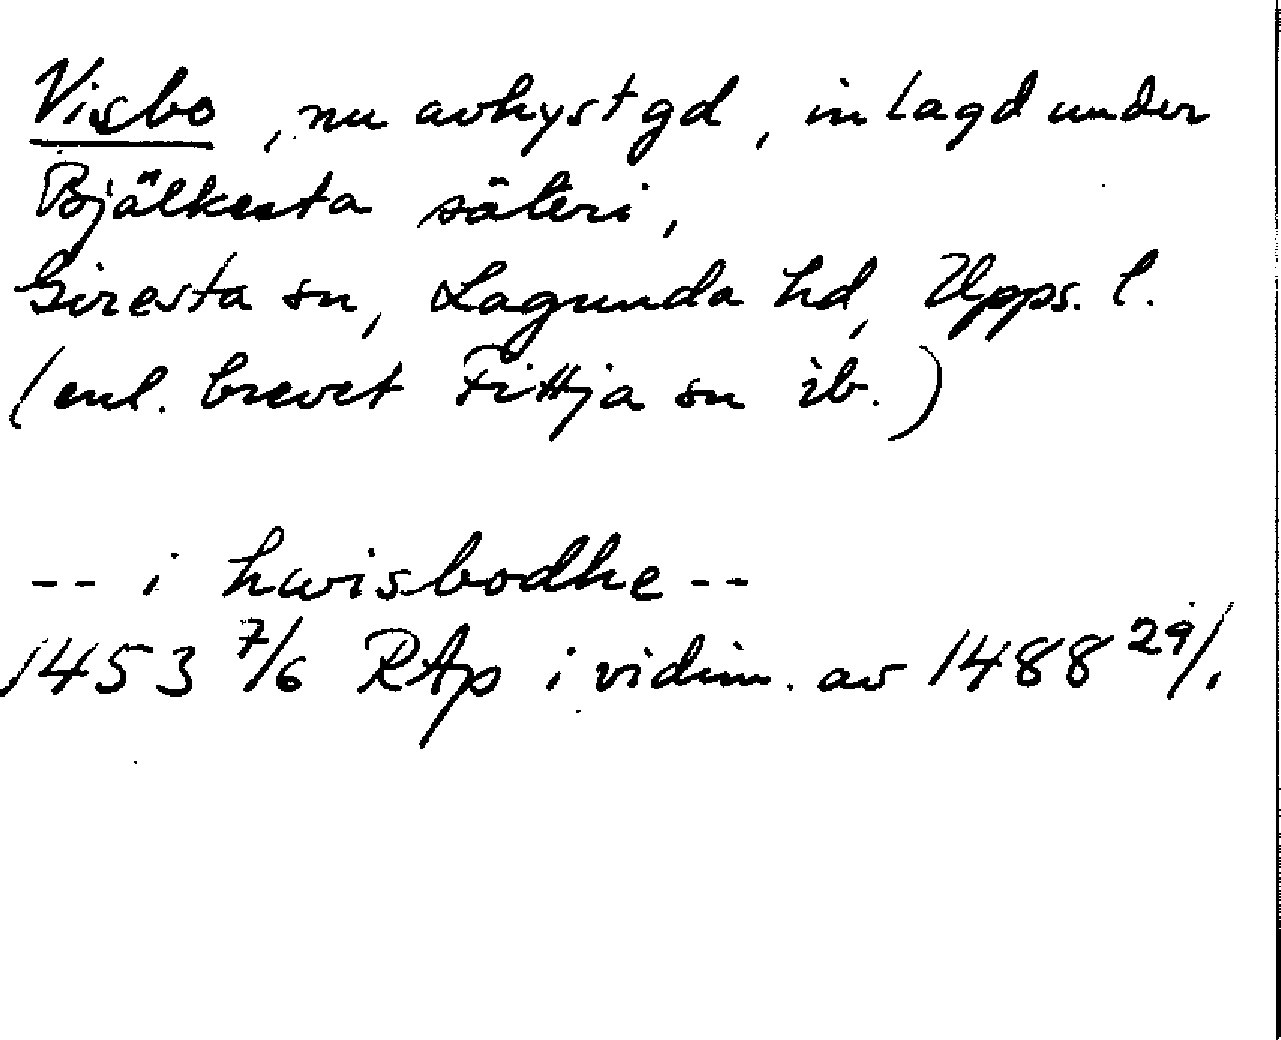 Visbo, nu avhyst gd, inlagd under
Bjälkesta säteri,
Giresta sn, Lagunda hd, Upps. l.
(enl. brevet Fittja sn ib.)
-- i hwisbodhe --
1453 7/6 RAp i vidim. av 1488 29/1